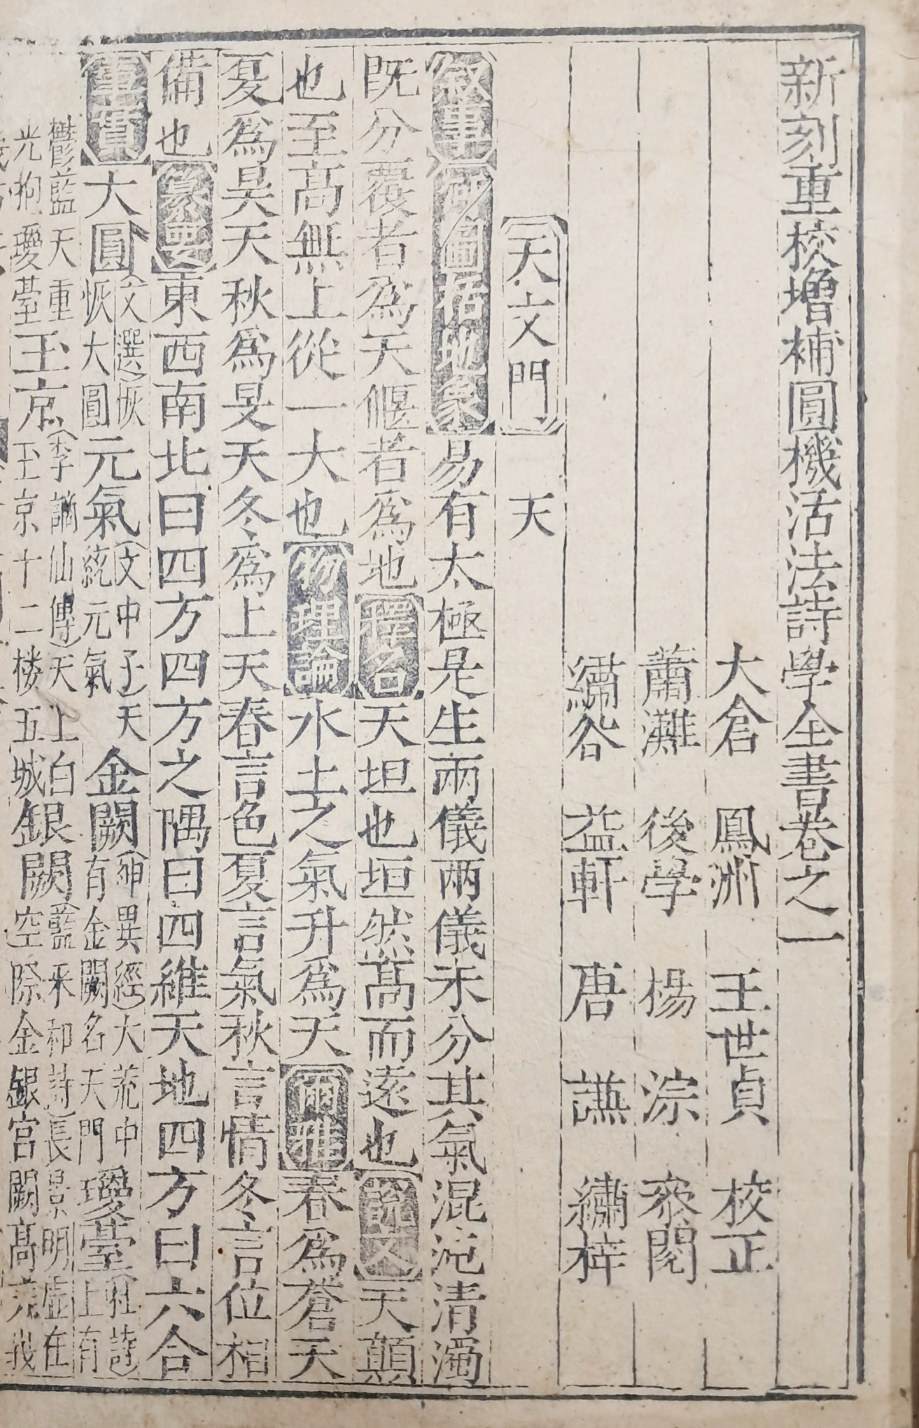 新刻重校増補圓機活法詩學全書卷之一
大倉 鳳洲 王世貞 校正
蕭灘 後學 楊淙 叅閱
繡谷 益軒 唐謙 繡梓
天文門 天
叙事 河圖括地象 易有太極是生兩儀兩儀未分其氣混沌清濁
既分覆者為天偃者為地 釋名 天坦也坦然髙而遠也 說文 天顛
也至髙無上從一大也 物理論 水土之氣升為天 爾雅 春為蒼天
夏為昊天秋為旻天冬為上天春言色夏言氣秋言情冬言位相
備也 纂要 東西南北曰四方四方之隅曰四維天地四方曰六合
事實 大圓 文選恢恢大圓 元氣 文中子天統元氣 金闕 神異經大荒中有金闕名天門 瓊臺 杜詩上有
鬱藍天重光抱瓊臺 玉京 李謫仙傳天上白玉京十二楼五城 銀闕 藍采和詩長景明虛在空際金銀宮闕髙嵬峩